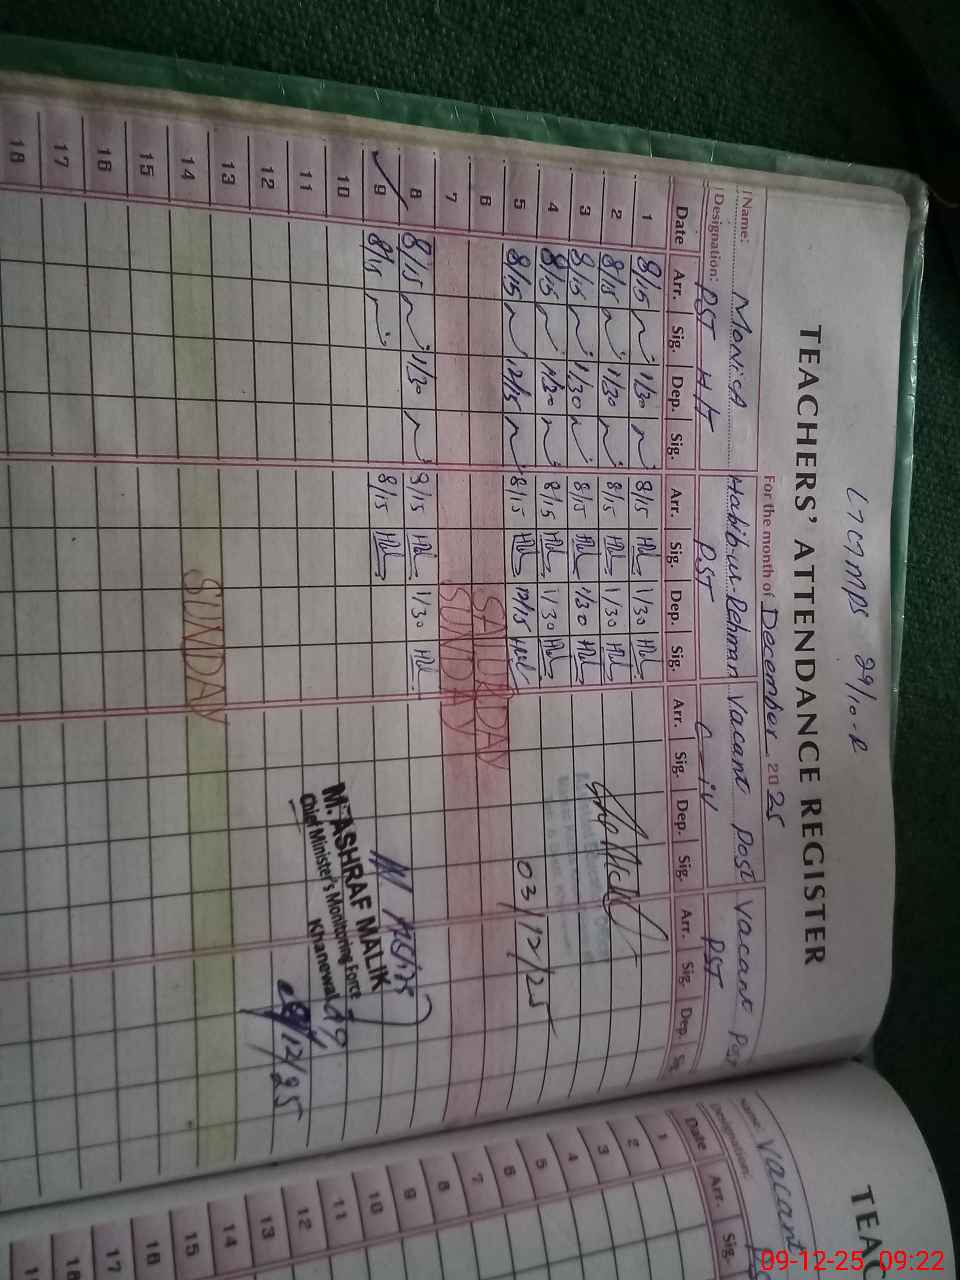 TEACHERS' ATTENDANCE REGISTER
For the month of December 2025
Name: Monica Habib-ur-Rehman Vacant Post Vacant Post
Designation: PST PST C-iv PST
Date Arr. Sig. Dep. Sig. Arr. Sig. Dep. Sig. Arr. Sig. Dep. Sig. Arr. Sig. Dep. Sig.
1 8/15 1/30 8/15 1/30
2 8/15 1/30 8/15 1/30
3 8/15 1/30 8/15 1/30
4 8/15 1/30 8/15 1/30
5 8/15 12/15 8/15 12/15 03/12/25
6 SATURDAY
7 SUNDAY
8 8/15 1/30 8/15 1/30
9 8/15 8/15
10
11
12
13
14 SUNDAY
15
16
17
18
M. ASHRAF MALIK
Chief Minister's Monitoring Force
Khanewal
09/12/25
TEAC
Name: Vacant
Designation:
Date Arr. Sig.
1
2
3
4
5
6
7
8
9
10
11
12
13
14
15
16
17
18
09-12-25 09:22